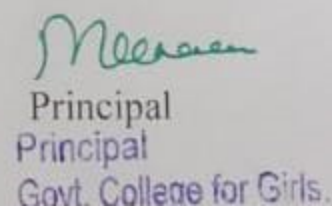 Principal
Principal
Govt. College for Girls,